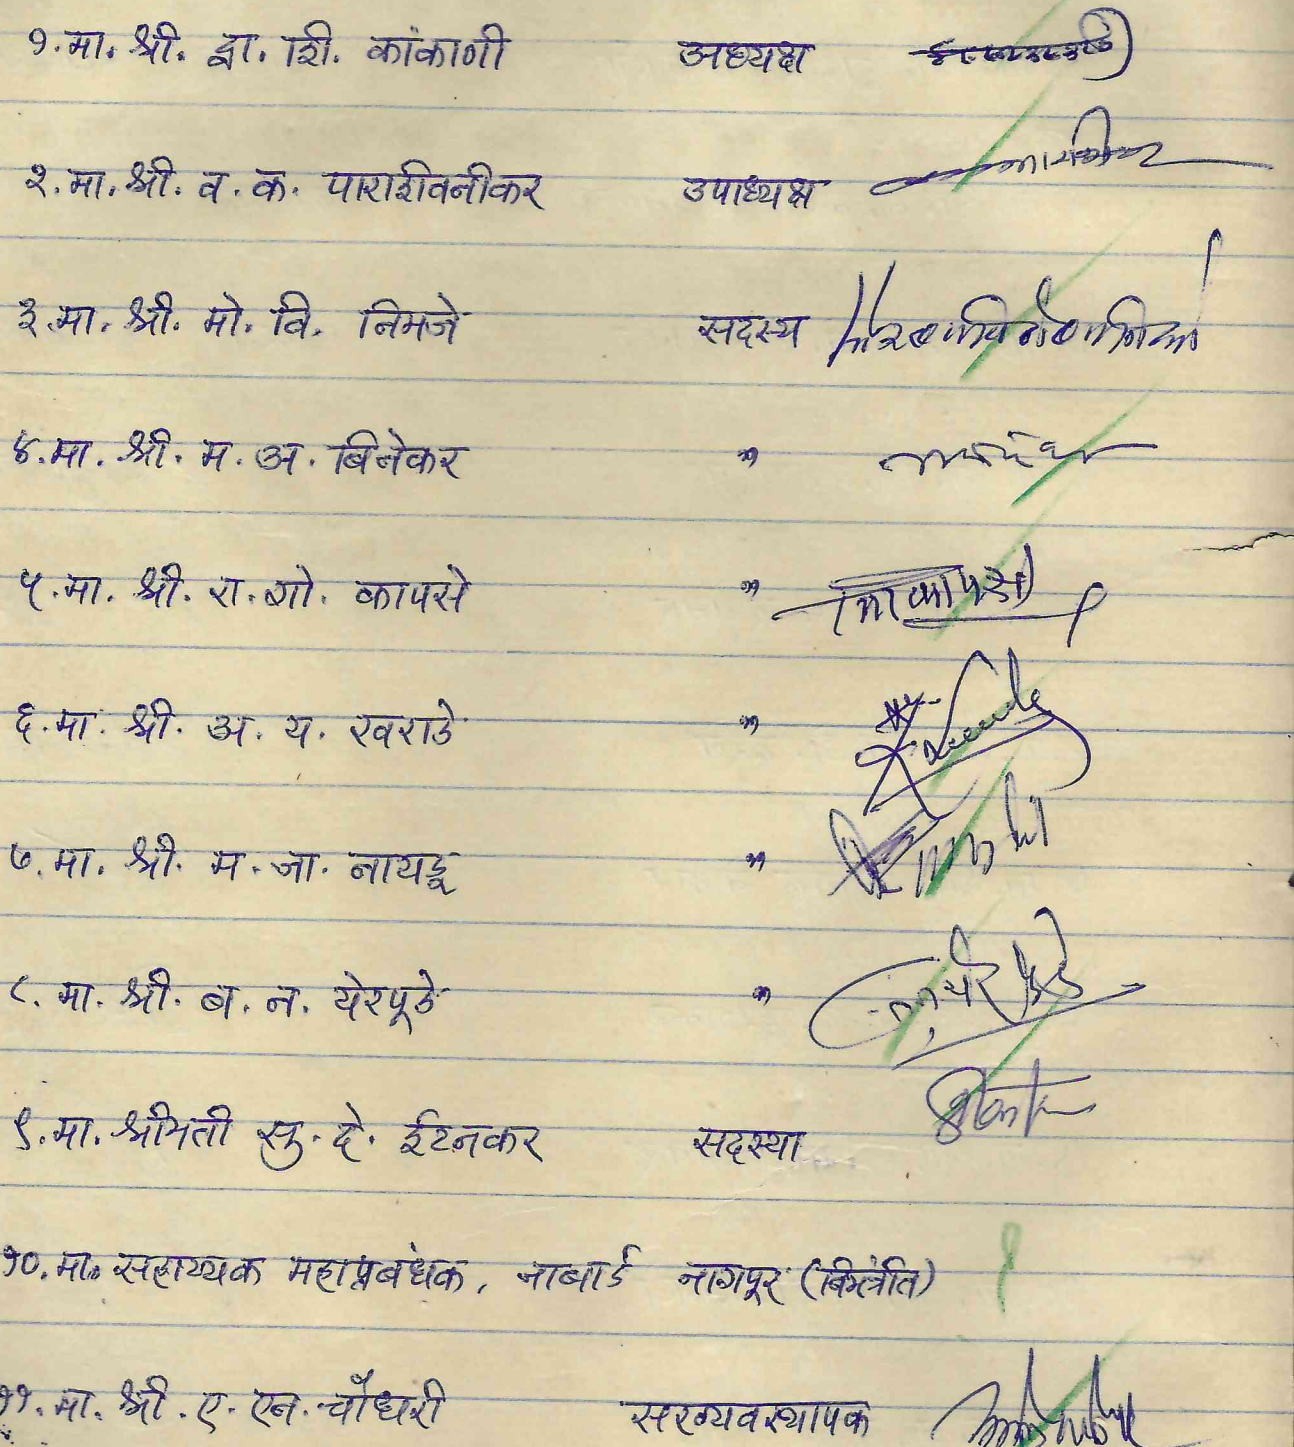 १. मा. श्री. द्वा. शि. कांकाणी अध्यक्ष
२. मा. श्री. व. क. पाराशीवनीकर उपाध्यक्ष
३. मा. श्री. मो. वि. निमजे सदस्य
४. मा. श्री. म. अ. बिनेकर "
५. मा. श्री. रा. गो. कापसे "
६. मा. श्री. अ. य. खराडे "
७. मा. श्री. म. जा. नायडू "
८. मा. श्री. ब. न. येरपूडे "
९. मा. श्रीमती सु. दे. ईटनकर सदस्या
१०. मा. सहाय्यक महाप्रबंधक, नाबार्ड नागपूर (निमंत्रीत)
११. मा. श्री. ए. एन. चौधरी सरव्यवस्थापक